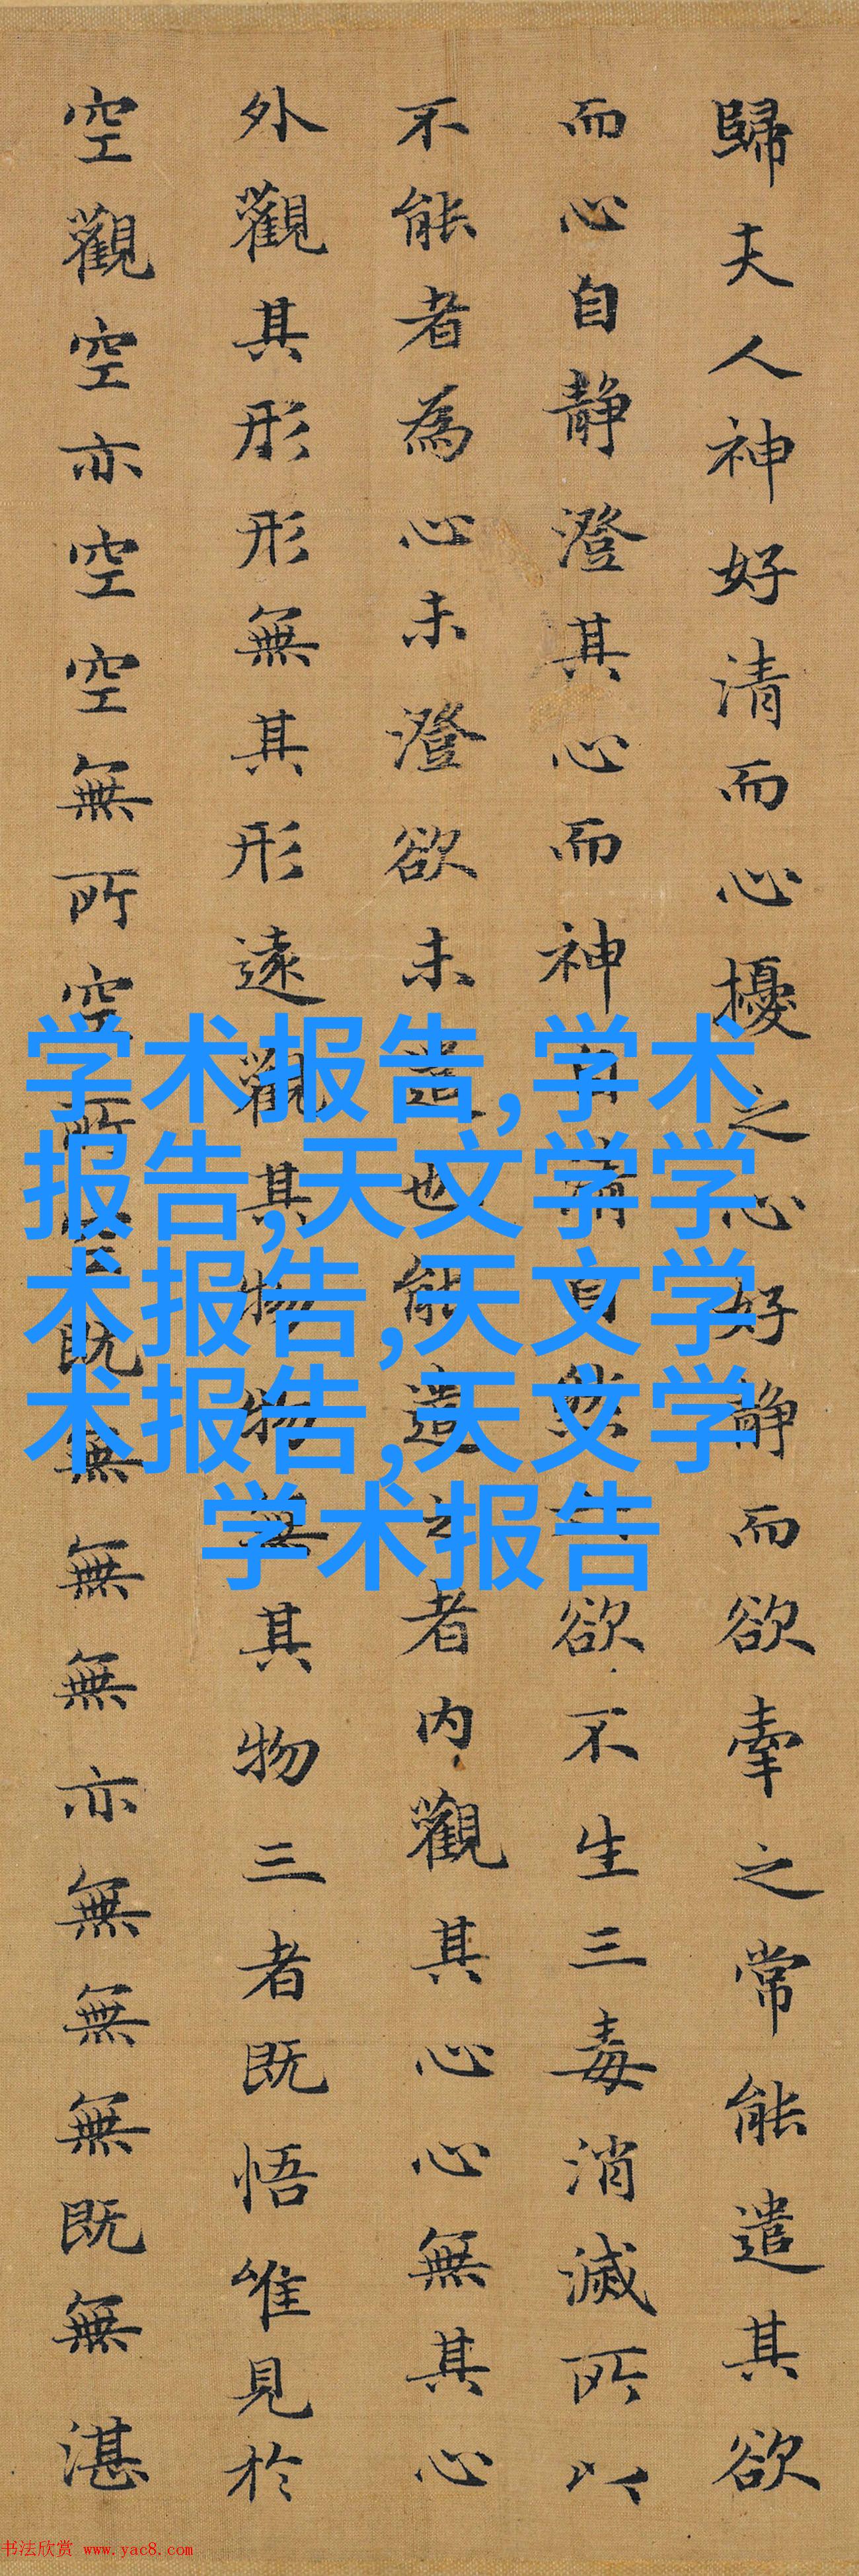 歸夫人神好清而心擾之心好静而欲牽之常能遣其欲
而心自静澄其心而神自清自然欲不生三毒消滅所以
不能者為心未澄欲未遣也能遣之者内觀其心心無其心
外觀其形形無其形遠觀其物物無其物三者既悟唯見於
空觀空亦空空無所空所空既無無無亦無無無既無湛
学术报告,学术
报告,天文学学
术报告,天文学
术报告,天文学
学术报告
书法欣赏 www.yac8.com